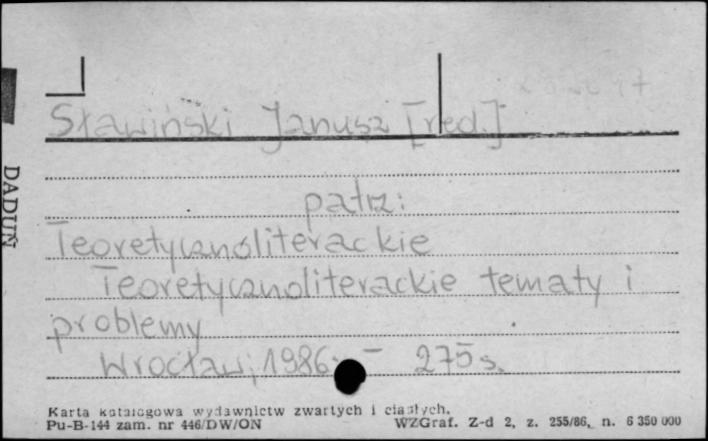 Sławiński Janusz [red.]
patrz:
Teoretycznoliterackie
Teoretycznoliterackie tematy i
problemy
Wrocław; 1986. – 275 s.
DADUŃ
Karta katalogowa wydawnictw zwartych i ciągłych.
Pu-B-144 zam. nr 446/DW/ON WZGraf. Z-d 2, z. 255/86, n. 6 350 000